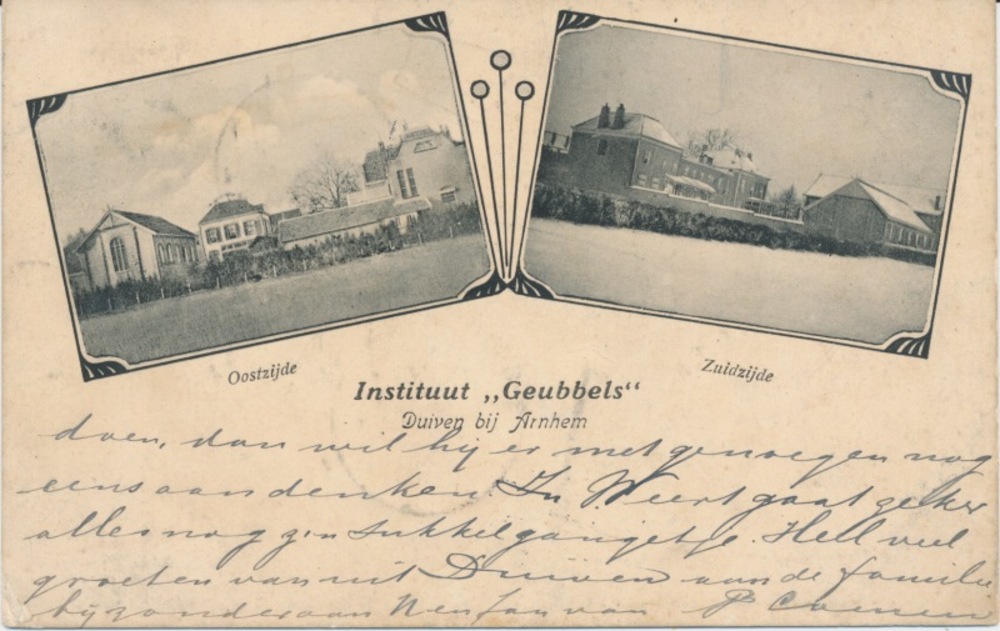 Oostzijde
Zuidzijde
Instituut „Geubbels“
Duiven bij Arnhem
doen, dan wil hij er met genoegen nog
eens aan denken. In Weert gaat zeker
alles nog z'n sukkelgangetje. Heel veel
groeten van uit Duiven aan de familie
bijzonder aan van